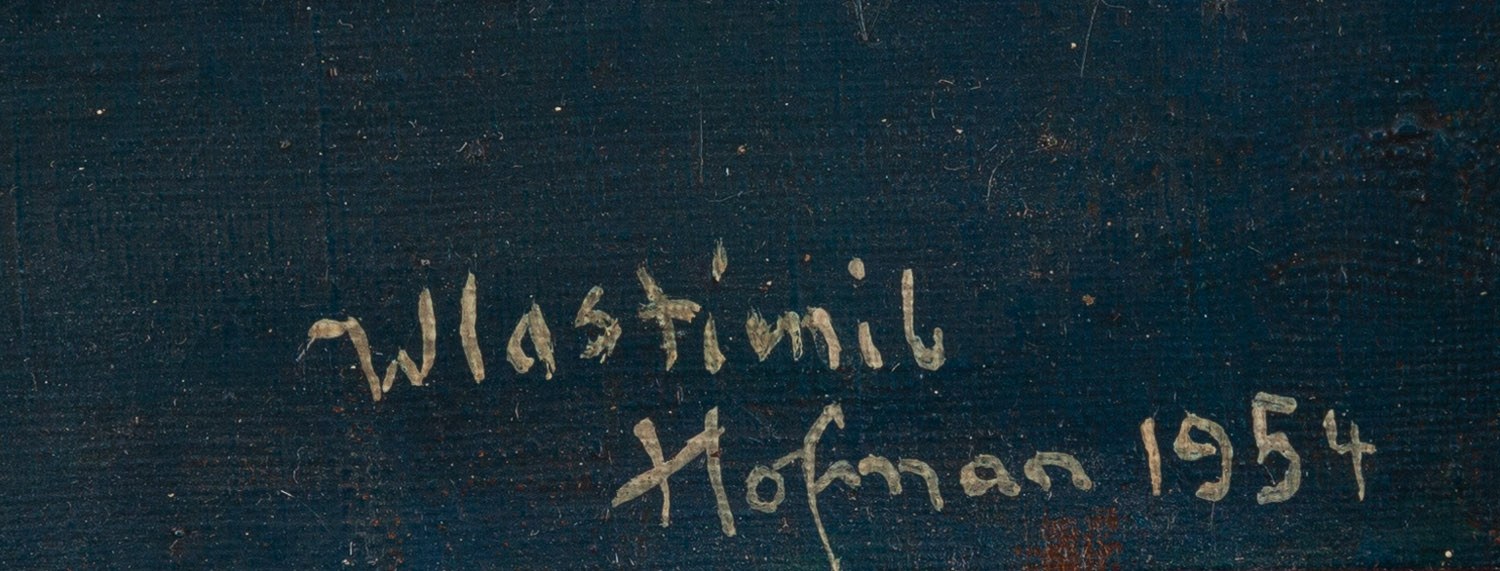 Wlastimil
Hofman 1954